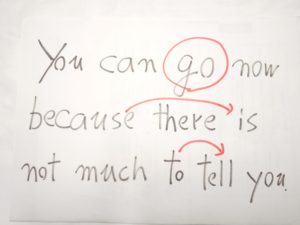 You can go now
because there is
not much to tell you.